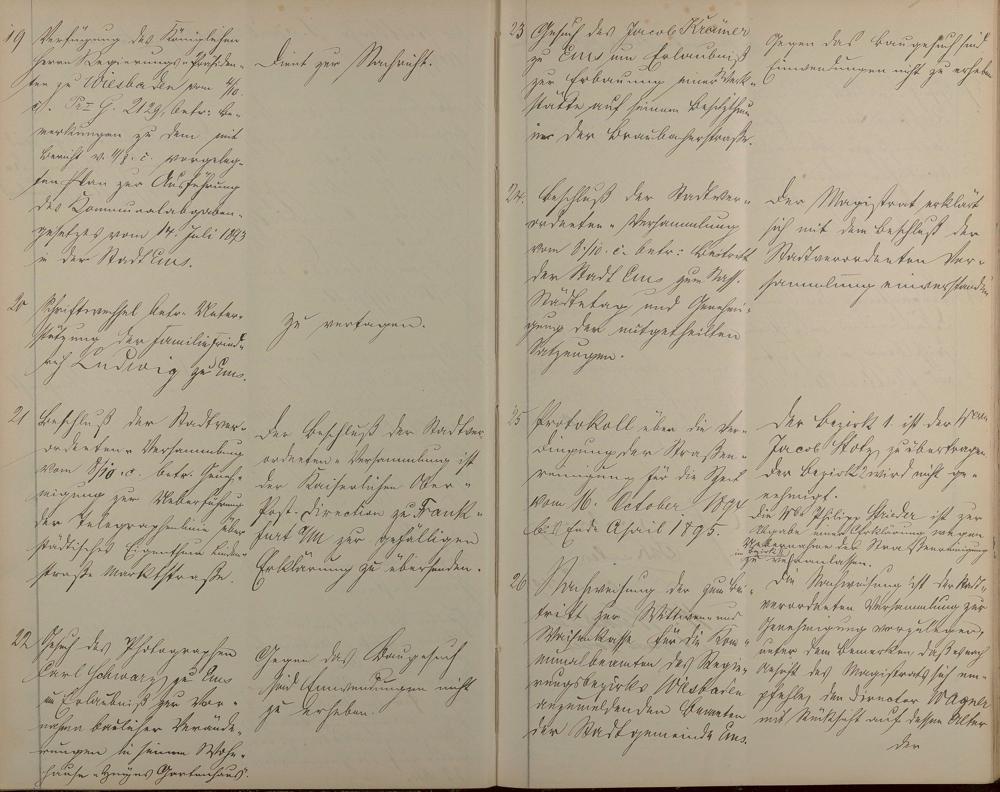 19 Verfügung des Königlichen
Herrn Regierungs-Präsiden-
ten zu Wiesbaden vom 4/10.
cr. Pr I G. 2129, betr: Be-
merkungen zu dem mit
Bericht v. c. vorgeleg-
ten Plan zur Ausführung
des Kommunalabgaben-
gesetzes vom 14. Juli 1893
in der Stadt Ems.
Dient zur Nachricht.
20 Schriftwechsel betr. Unter-
stützung der Familie Fried-
rich Ludwig zu Ems.
Zu vertagen.
21 Beschluß der Stadtver-
ordneten-Versammlung
vom 8/10. c. betr. Geneh-
migung zur Ueberführung
der Telegraphenlinie über
städtisches Eigenthum
straße Marktstraße.
Der Beschluß der Stadtver-
ordneten-Versammlung ist
der Kaiserlichen Ober-
Post-Direction zu Frank-
furt a/M zur gefälligen
Erklärung zu übersenden.
22 Gesuch des Photographen
Carl Schwarz zu Ems
um Erlaubniß zur Vor-
nahme baulicher Verände-
rungen in seinem Wohn-
hause Gartenhaus".
Gegen das Baugesuch
sind Einwendungen nicht
zu erheben.
23 Gesuch des Jacob Krämer
zu Ems um Erlaubniß
zur Erbauung einer Werk-
stätte auf seinem Besitzthum
in der Braubacherstraße.
Gegen das Baugesuch sind
Einwendungen nicht zu erheben
24. Beschluß der Stadtver-
ordneten-Versammlung
vom 8./10. c. betr: Beitritt
der Stadt Ems zum Nass.
Städtetag und Genehmi-
gung der mitgetheilten
Satzungen.
Der Magistrat erklärt
sich mit dem Beschluß der
Stadtverordneten Ver-
sammlung einverstanden
25 Protokoll über die Ver-
dingung der Straßen-
reinigung für die Zeit
vom 16. October 1894
bis Ende April 1895.
Der Bezirk 1. ist der
Jacob Stotz zu übertragen
der Bezirk 2 wird nicht ge-
nehmigt.
Die Philipp ist zur
Abgabe einer Erklärung wegen
Uebernahme der Straßenreinigung
in Bezirk 2
zu veranlassen.
26 Nachweisung der zum Bei-
tritt zur Wittwen- und
Waisenkasse für die Kom-
munalbeamten des Regie-
rungsbezirks Wiesbaden
anzumeldenden Beamten
der Stadtgemeinde Ems.
Die Nachweisung ist der Stadt-
verordneten Versammlung zur
Genehmigung vorzulegen,
unter dem Bemerken, daß es nach
Ansicht des Magistrats sich em-
pfehle, den Director Wagner
mit Rücksicht auf dessen Alter
der